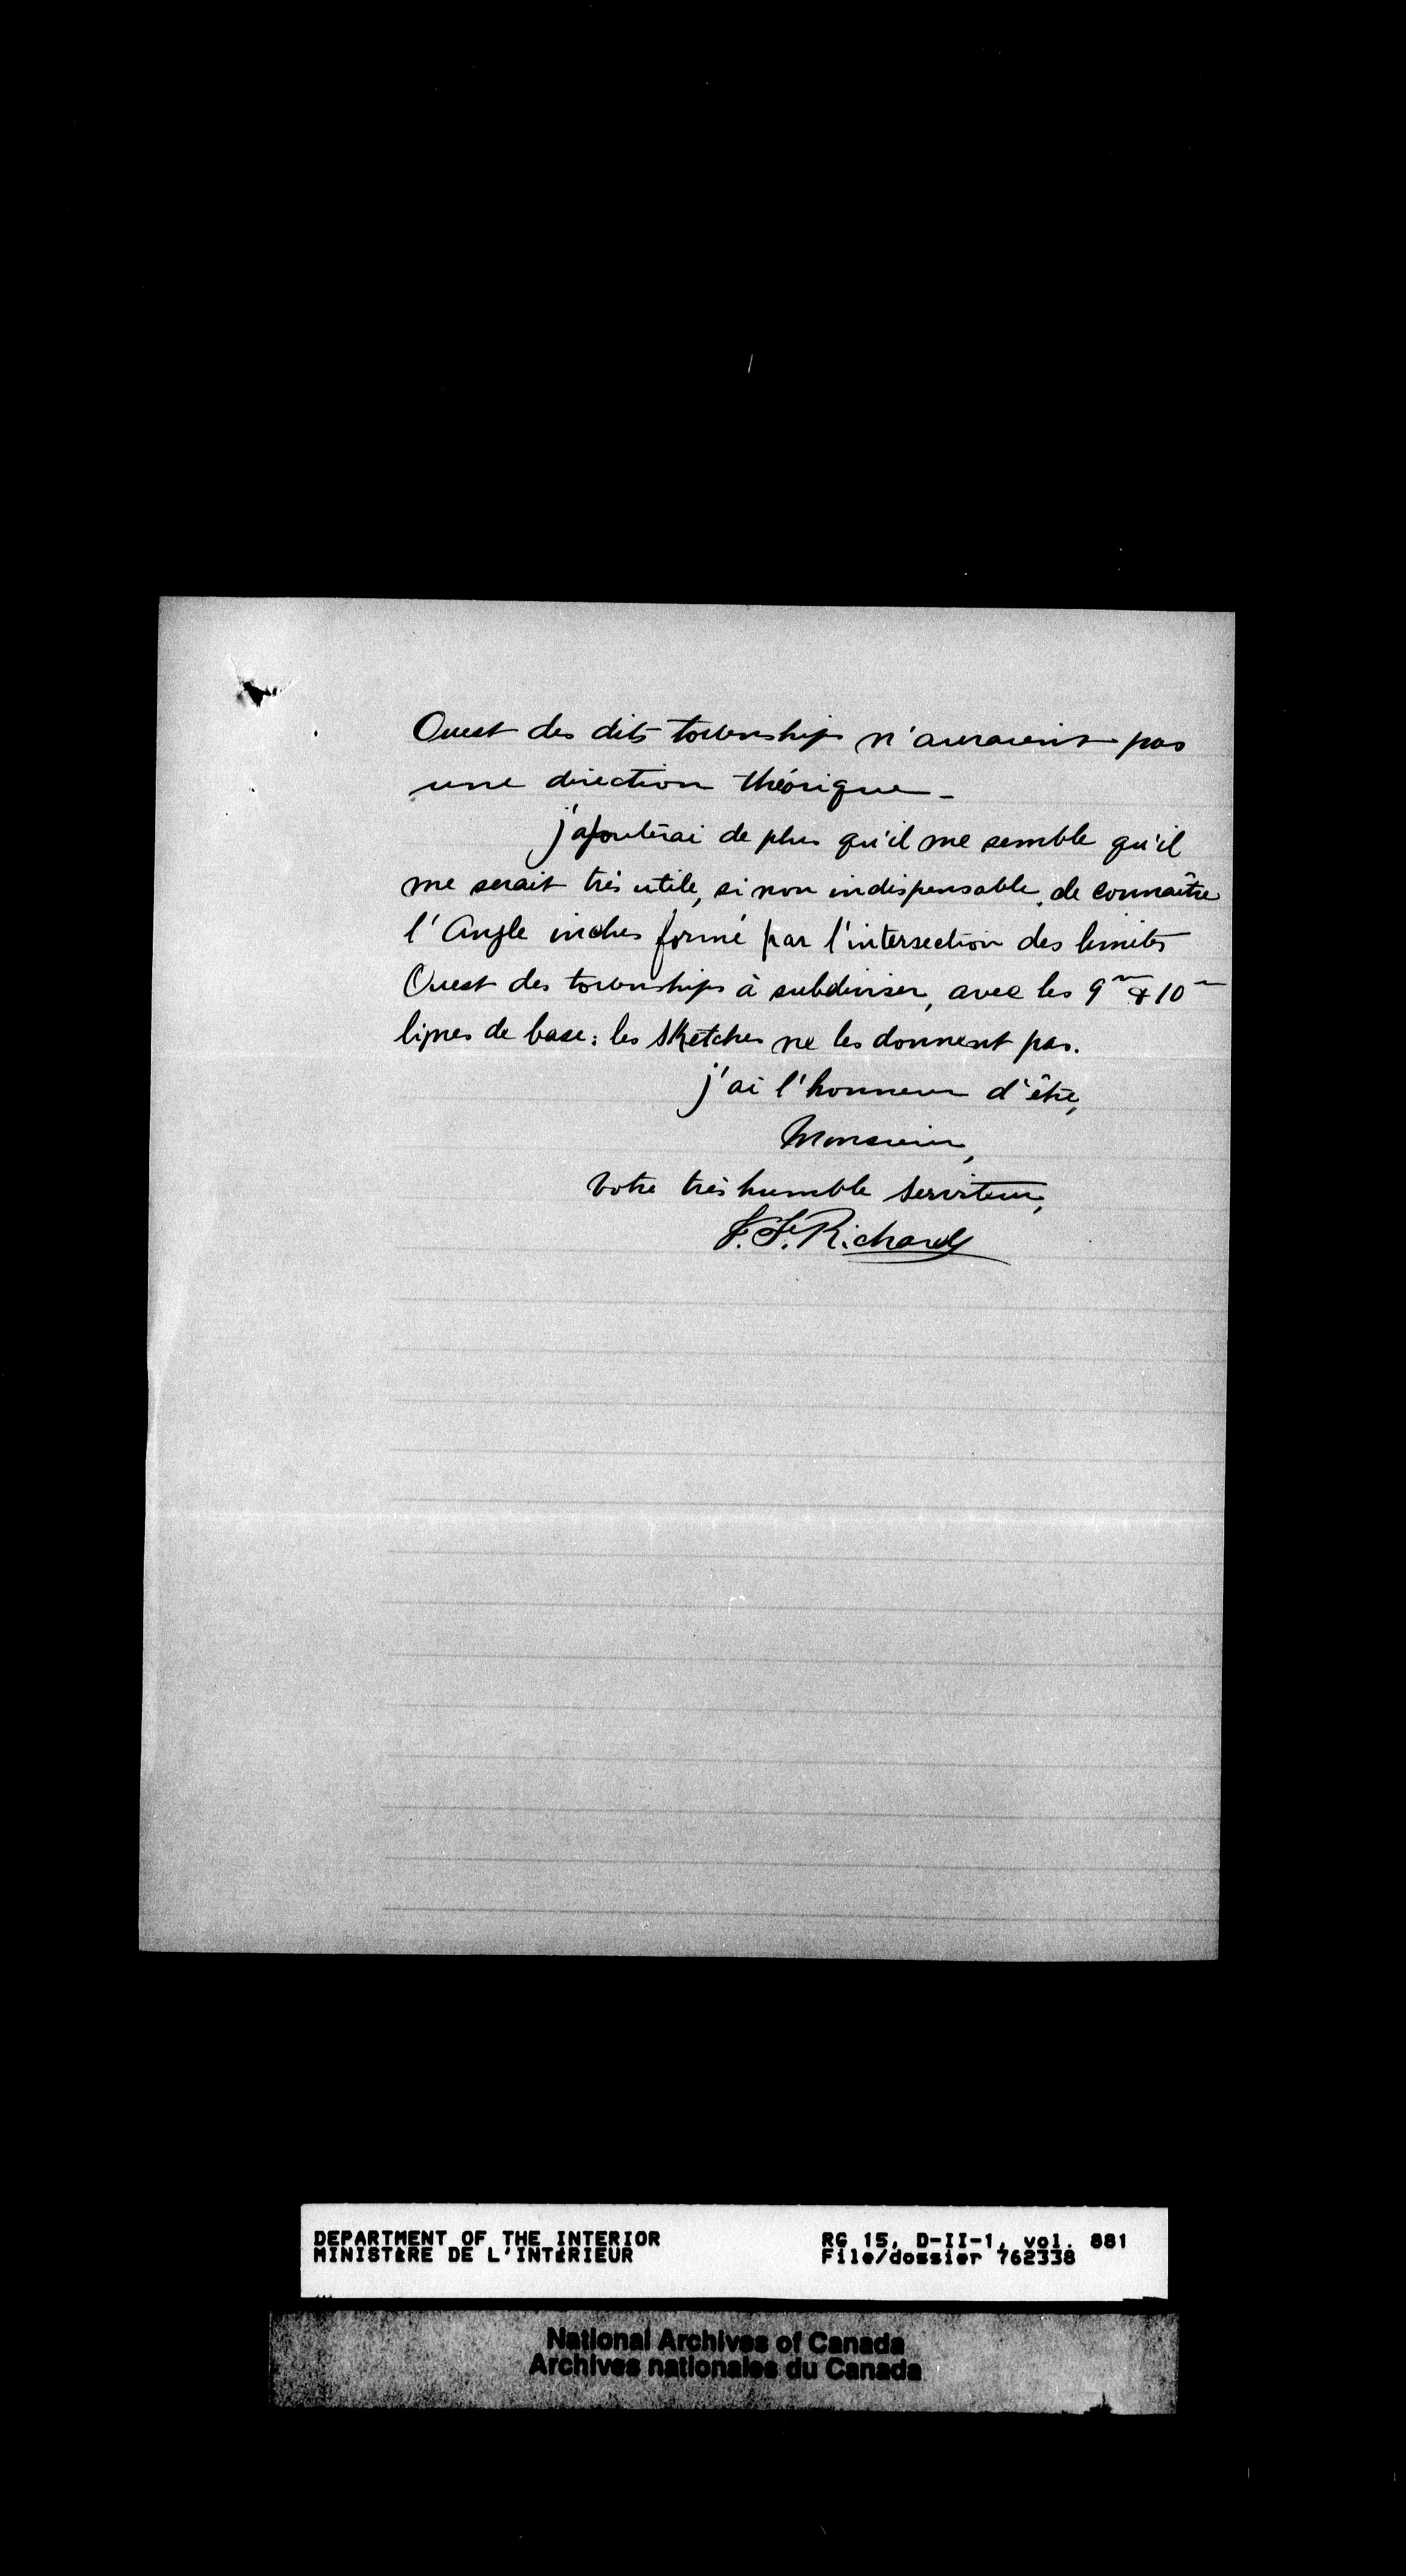 Ouest des dits townships n'auraient pas
une direction théorique_
j'ajouterai de plus qu'il me semble qu'il
me serait très utile, si non indispensable, de connaître
l'Angle inclus formé par l'intersection des limites
Ouest des townships à subdiviser, avec les 9me & 10me
lignes de base: les sketches ne les donnent pas.
j'ai l'honneur d'être,
Monsieur,
votre très humble serviteur,
J. F. Richard
DEPARTMENT OF THE INTERIOR RG 15, D-II-1, vol. 881
MINISTÈRE DE L'INTÉRIEUR File/dossier 762338
National Archives of Canada
Archives nationales du Canada